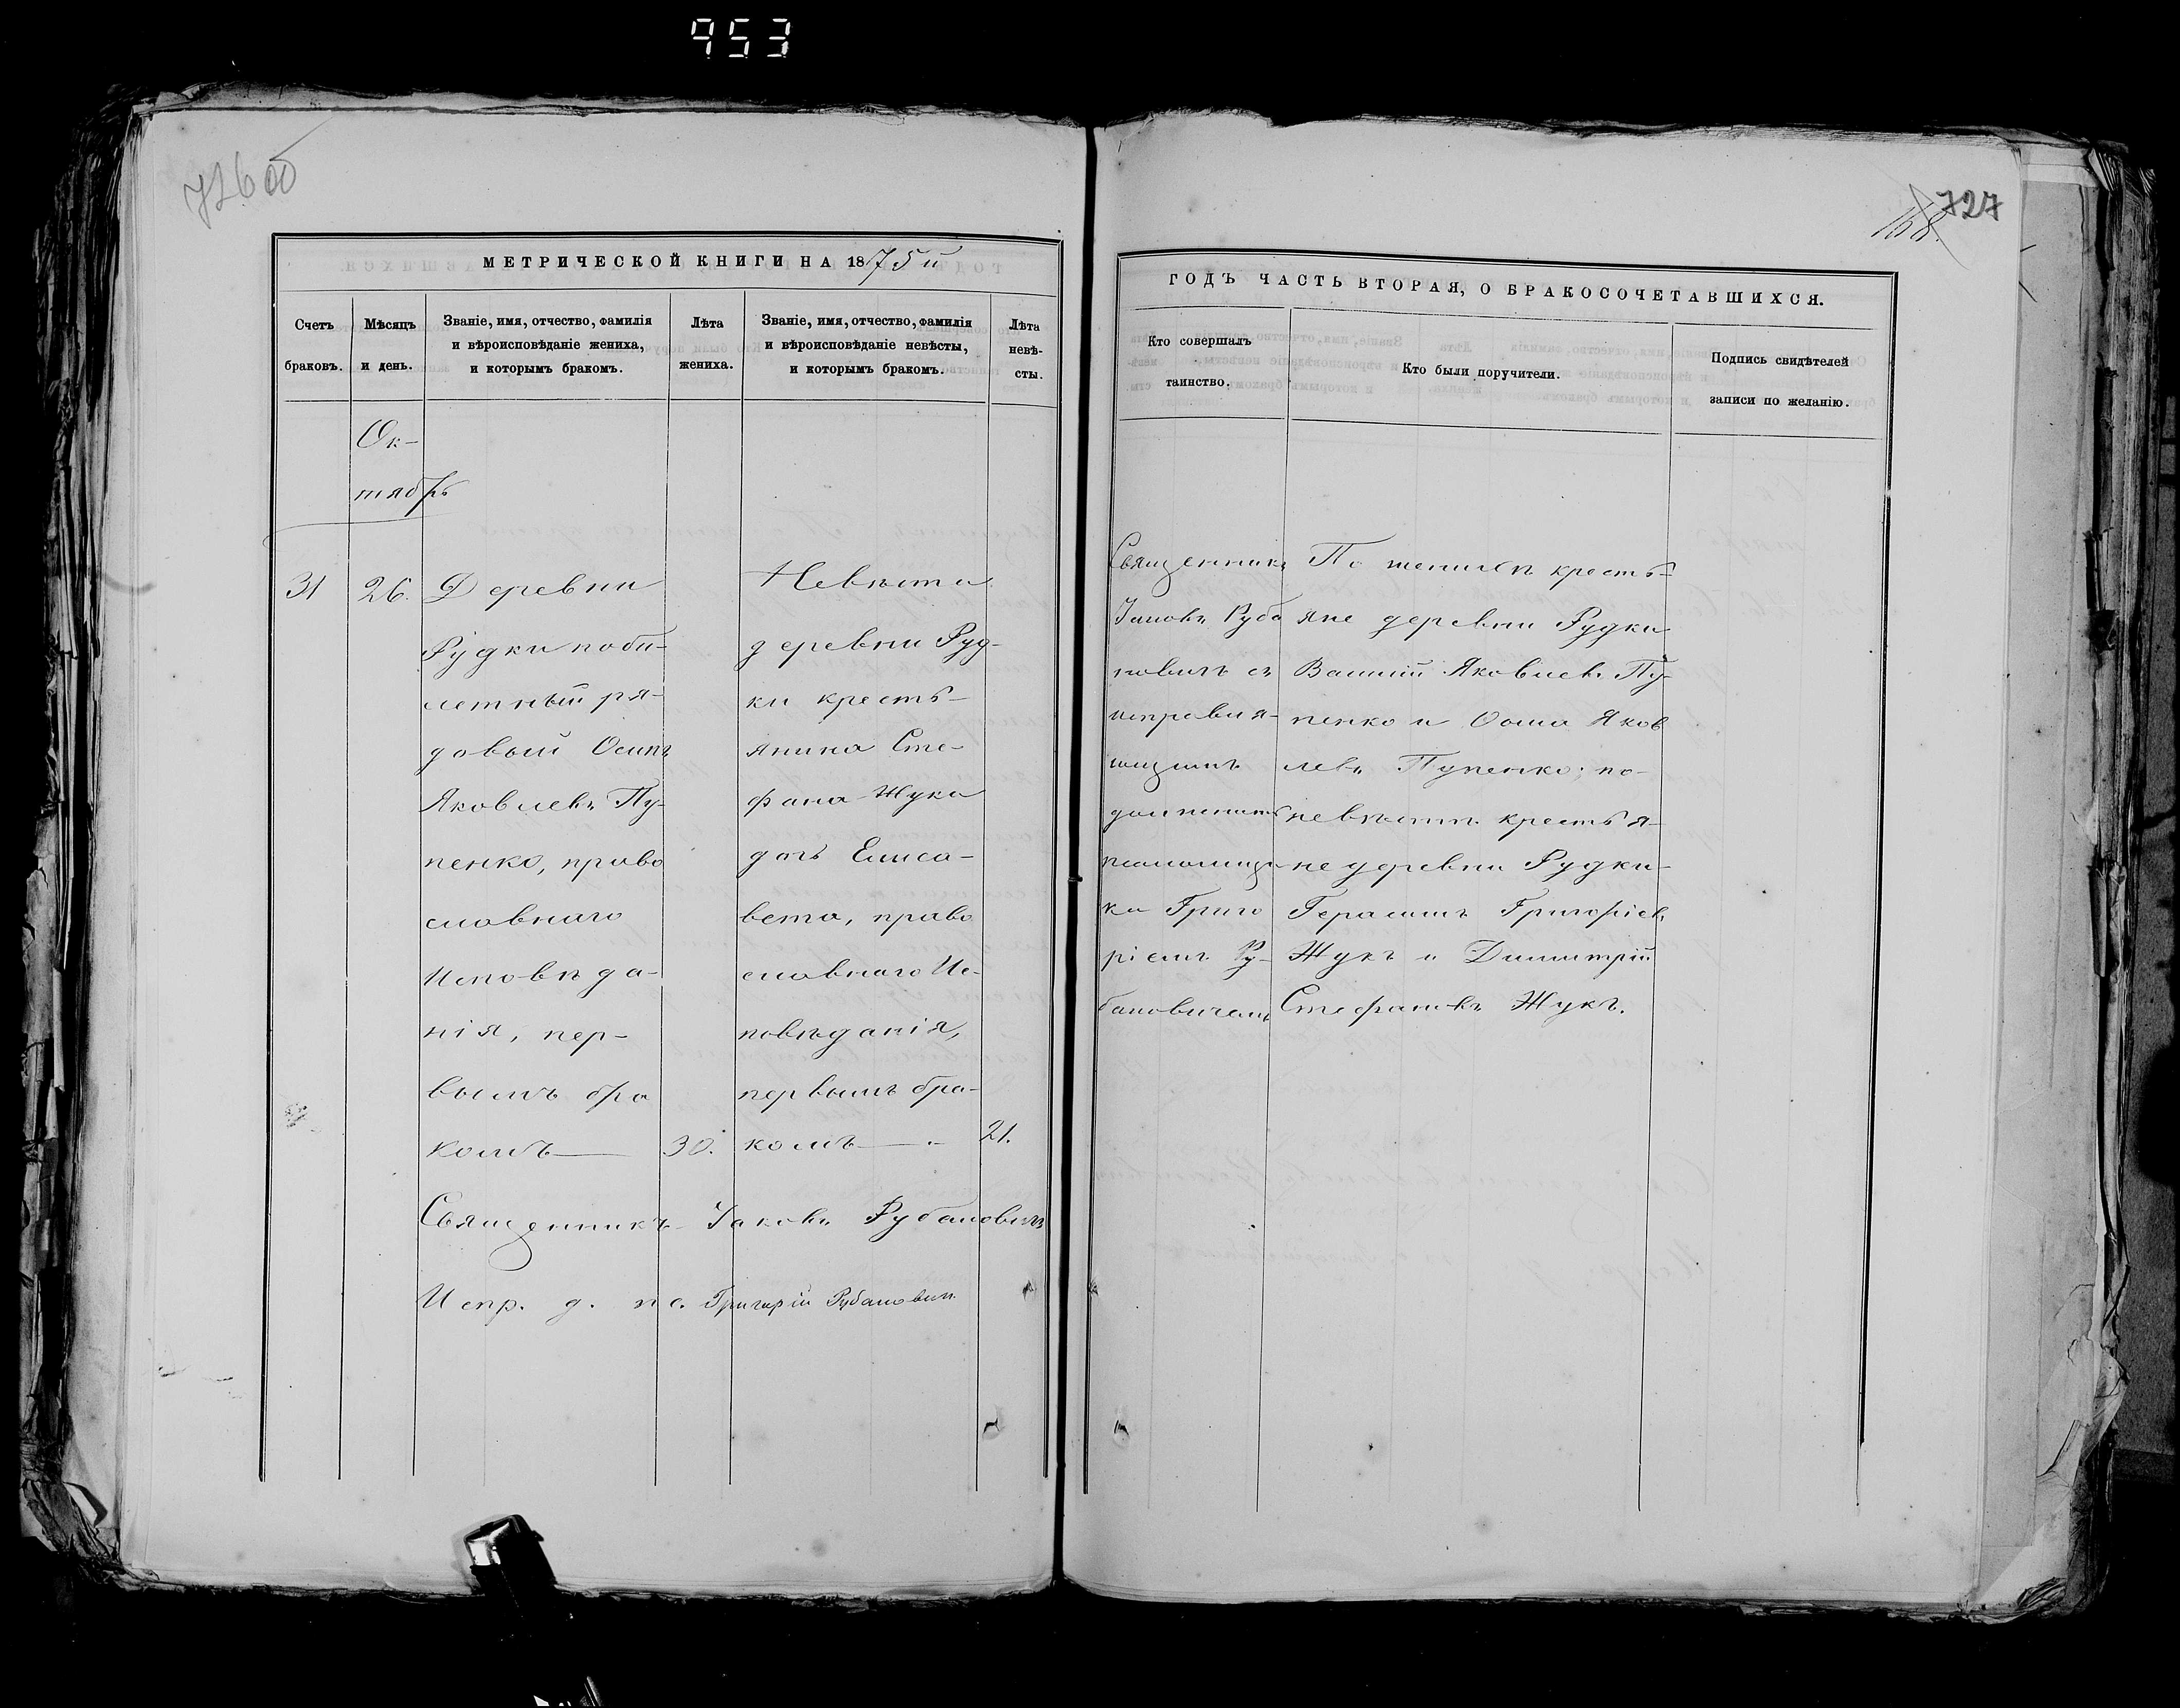 953
726 об
168.
727
МЕТРИЧЕСКОЙ КНИГИ НА 1875й
Счетъ
браковъ.
Мѣсяцъ
и день.
Званіе, имя, отчество, фамилія
и вѣроисповѣданіе жениха,
и которымъ бракомъ.
Лѣта
жениха.
Званіе, имя, отчество, фамилія
и вѣроисповѣданіе невѣсты,
и которымъ бракомъ.
Лѣта
невѣ-
сты.
Ок-
тябрь
31
26.
Деревни
Рудки поби-
летный ря-
довый Осипъ
Яковлевъ Пу-
пенко, право
славнаго
Исповѣда-
нія, пер-
вымъ бра
комъ
30.
Невѣста
деревни Руд-
ки кресть-
янина Сте-
фана Жука
дочь Елиса-
вета, право
славнаго Ис-
повѣданія,
первымъ бра-
комъ
21.
Священникъ Іаковъ Рубановичъ
Испр. д. пс. Григорій Рубановичъ
ГОДЪ ЧАСТЬ ВТОРАЯ, О БРАКОСОЧЕТАВШИХСЯ.
Кто совершалъ
таинство.
Кто были поручители.
Подпись свидѣтелей
записи по желанію.
Священникъ
Іаковъ Руба
новичъ съ
исправля-
ющимъ
должность
псаломщи-
ка Григо
ріемъ Ру-
бановичемъ
По женихѣ кресть-
яне деревни Рудки
Василій Яковлевъ Пу-
пенко и Ѳома Яков
левъ Пупенко; по
невѣстѣ крестья-
не деревни Рудки
Герасимъ Григоріевъ
Жукъ и Димитрій
Стефановъ Жукъ.